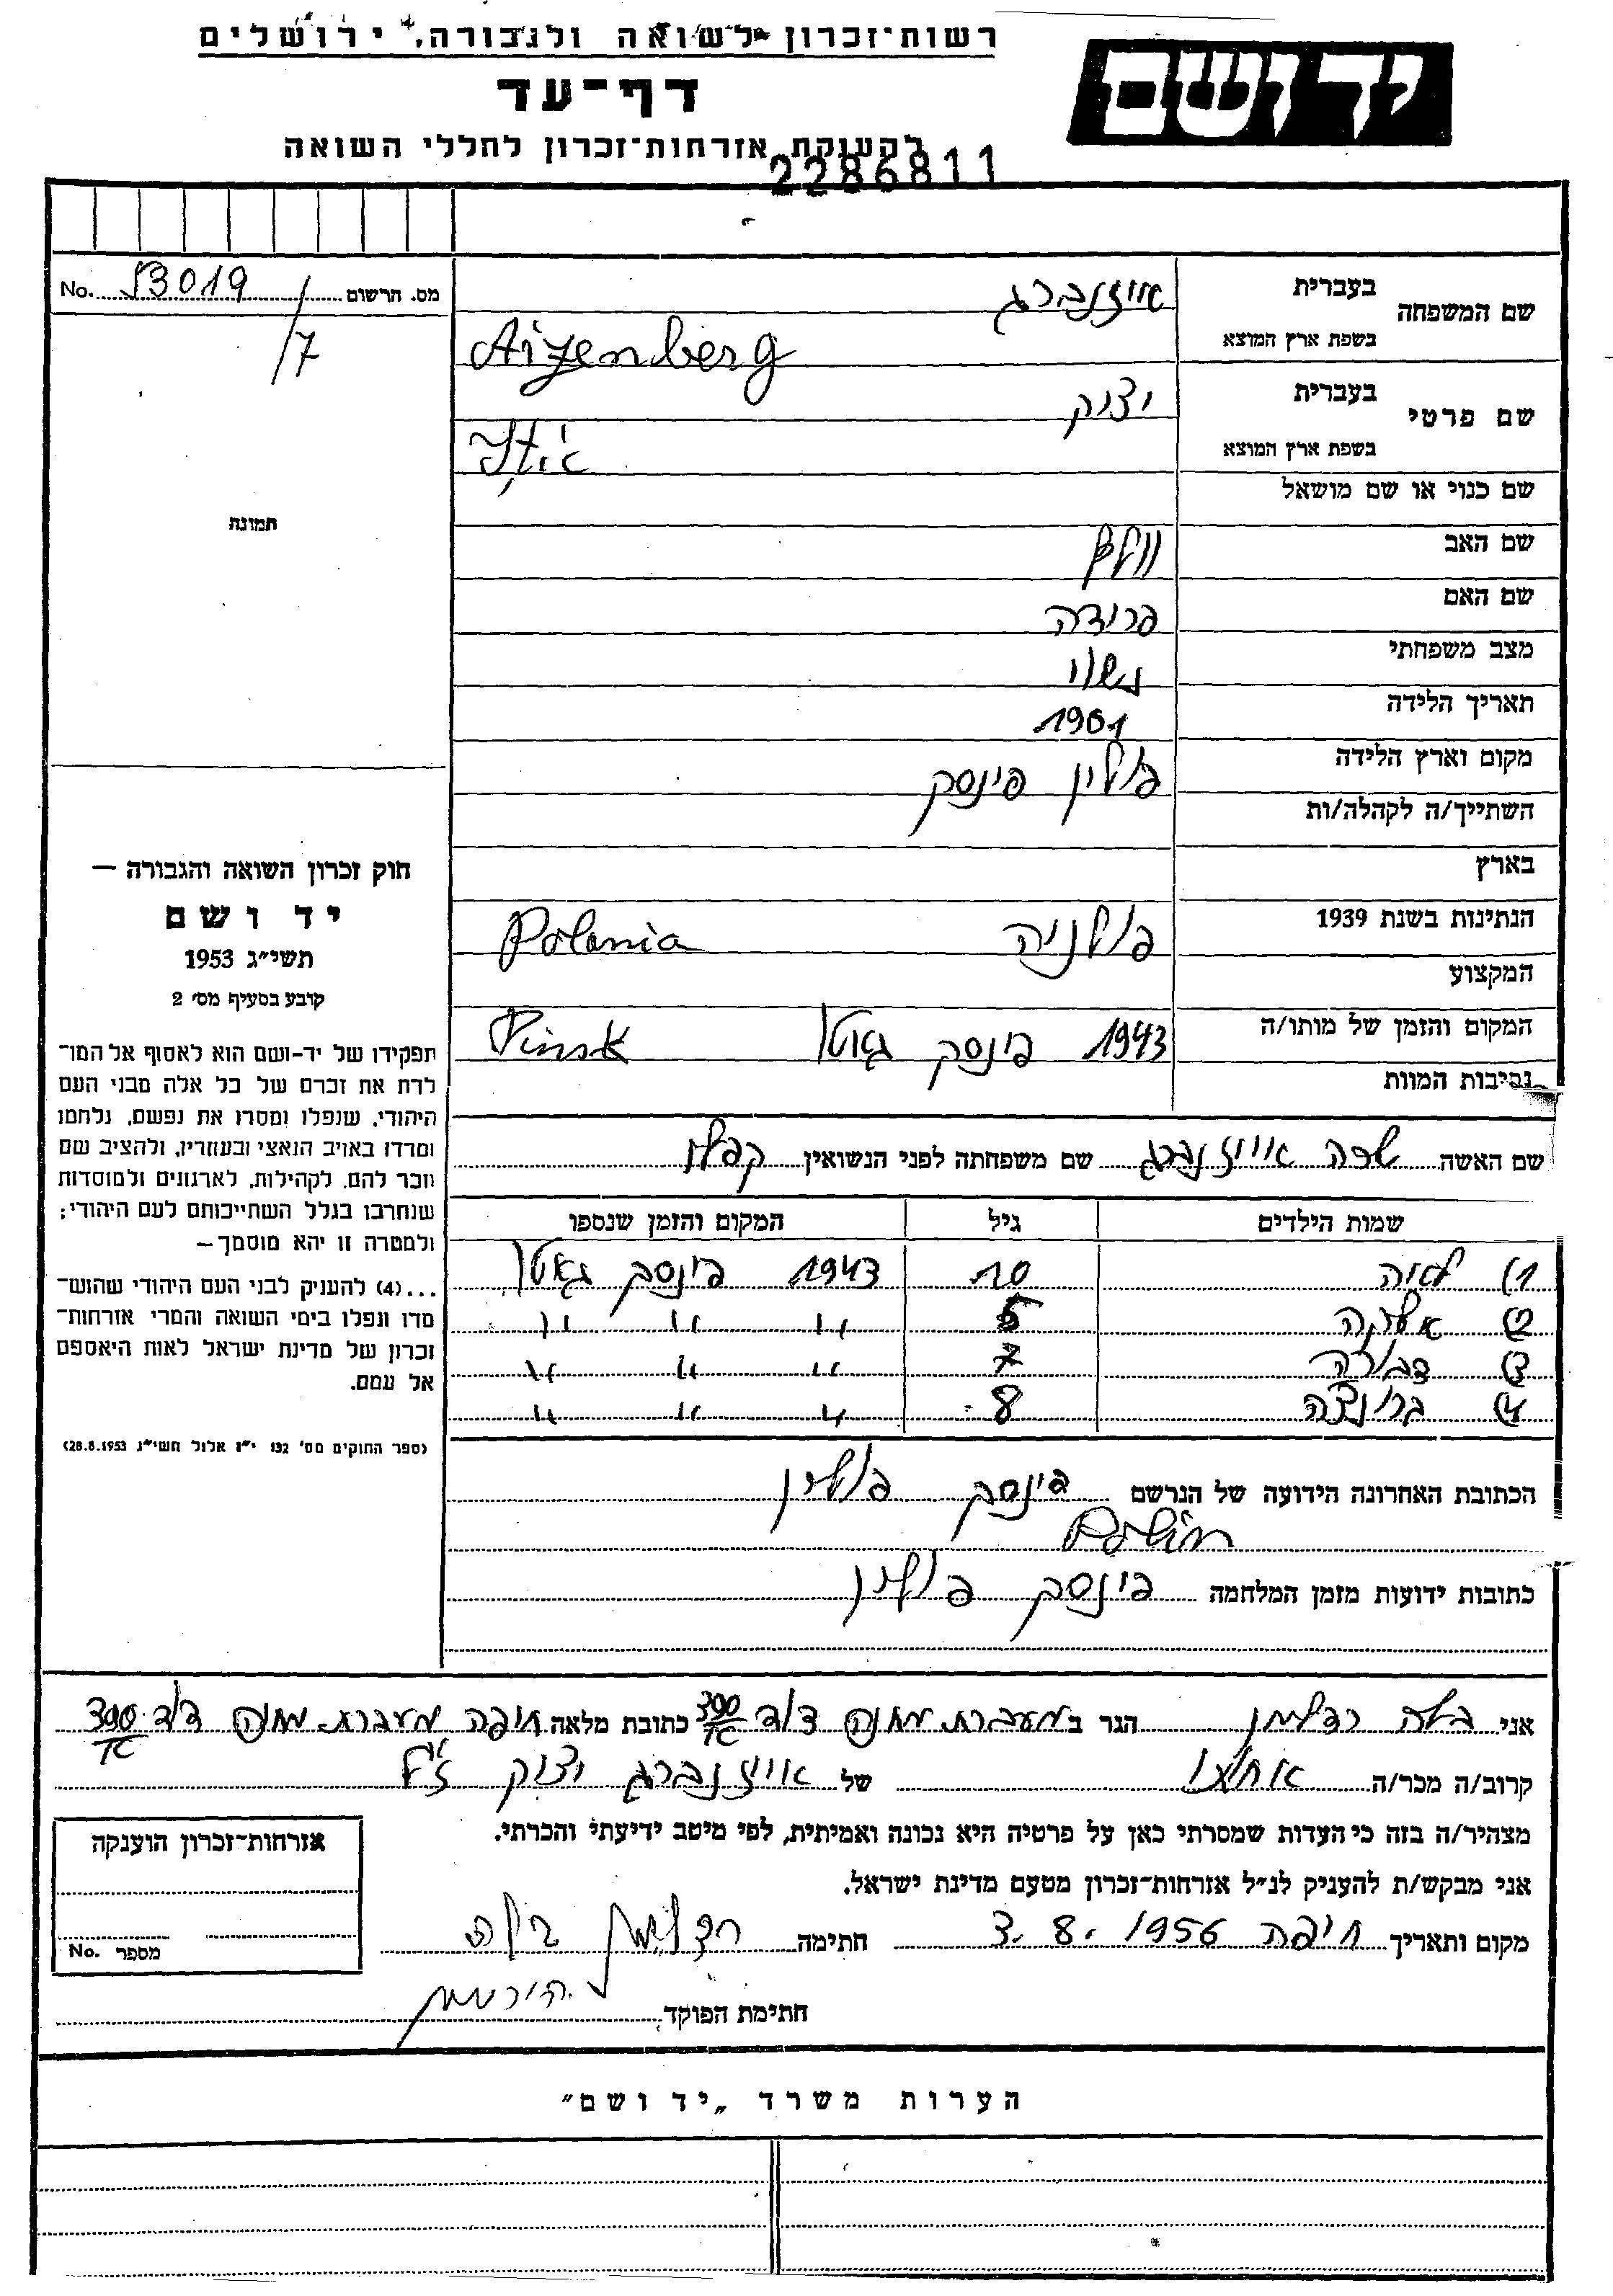 רשות־זכרון לשואה ולגבורה, ירושלים
יד ושם
דף־עד
להענקת אזרחות־זכרון לחללי השואה
2286811
מס. הרשום 53019 No.
/7
תמונה
חוק זכרון השואה והגבורה —
יד ושם
תשי״ג 1953
קובע בסעיף מס׳ 2
תפקידו של יד-ושם הוא לאסוף אל המו־
לדת את זכרם של כל אלה מבני העם
היהודי, שנפלו ומסרו את נפשם, נלחמו
ומרדו באויב הנאצי ובעוזריו, ולהציב שם
וזכר להם, לקהילות, לארגונים ולמוסדות
שנחרבו בגלל השתייכותם לעם היהודי;
ולמטרה זו יהא מוסמך—
...(4) להעניק לבני העם היהודי שהוש־
מדו ונפלו בימי השואה והמרי אזרחות־
זכרון של מדינת ישראל לאות היאספם
אל עמם.
(ספר החוקים מס׳ 132 י״ז אלול תשי״ג 28.8.1953)
שם המשפחה בעברית אייזנברג
בשפת ארץ המוצא Aizenberg
שם פרטי בעברית יצחק
בשפת ארץ המוצא
שם כנוי או שם מושאל
שם האב וולף
שם האם פרידה
מצב משפחתי נשוי
תאריך הלידה 1901
מקום וארץ הלידה פולין פינסק
השתייך/ה לקהלה/ות
בארץ
הנתינות בשנת 1939 פולניה Polonia
המקצוע
המקום והזמן של מותו/ה 1943 פינסק גאטו Pinsk
נסיבות המוות
שם האשה שרה אייזנברג שם משפחתה לפני הנשואין קפלן
שמות הילדים גיל המקום והזמן שנספו
1) לאה 10 1943 פינסק גאטו
2) 5 " " "
3) דבורה 7 " " "
4) 8 " " "
הכתובת האחרונה הידועה של הנרשם פינסק פולין
Polin
כתובות ידועות מזמן המלחמה פינסק פולין
אני בלה הגר ב מעברת מחנה דוד 390 כתובת מלאה חיפה מעברת מחנה דוד 390
קרוב/ה מכר/ה אחיו של אייזנברג יצחק ז״ל
מצהיר/ה בזה כי העדות שמסרתי כאן על פרטיה היא נכונה ואמיתית, לפי מיטב ידיעתי והכרתי.
אני מבקש/ת להעניק לנ״ל אזרחות־זכרון מטעם מדינת ישראל.
מקום ותאריך חיפה 3.8.1956 חתימה
חתימת הפוקד
אזרחות־זכרון הוענקה
מספר No.
הערות משרד „יד ושם״